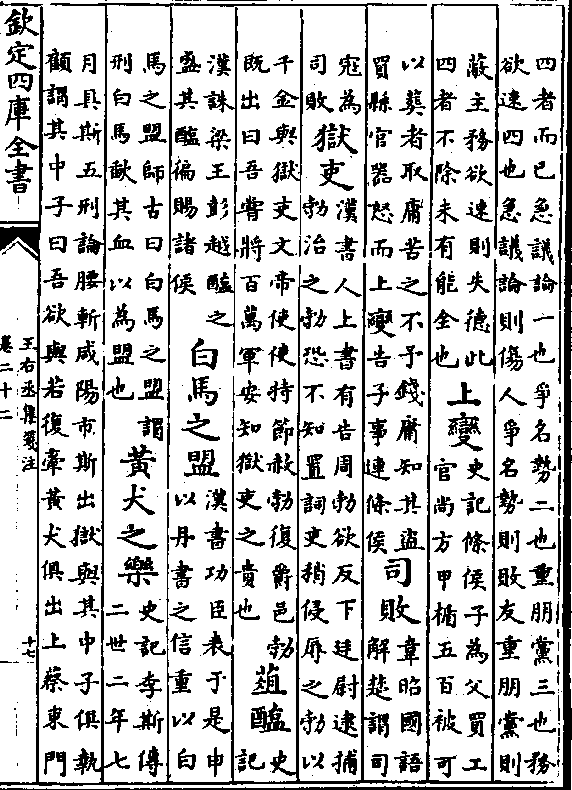 四者而已急議論一也爭名勢二也重朋黨三也務
欲速四也急議論則傷人爭名勢則敗友重朋黨則
蔽主務欲速則失德此
四者不除未有能全也
上變
史記條侯子為父買工
官尚方甲楯五百被可
以葬者取庸苦之不予錢庸知其盜
買縣官器怒而上變告子事連條侯
司敗
韋昭國語
解楚謂司
寇為
司敗
獄吏
漢書人上書有告周勃欲反下廷尉逮捕
勃治之勃恐不知置詞吏稍侵辱之勃以
千金與獄吏文帝使使持節赦勃復爵邑勃
既出曰吾嘗將百萬軍安知獄吏之貴也
菹醢
史
記
漢誅梁王彭越醢之
盛其醢徧賜諸侯
白馬之盟
漢書功臣表于是申
以丹書之信重以白
馬之盟師古曰白馬之盟謂
刑白馬歃其血以為盟也
黃犬之樂
史記李斯傳
二世二年七
月具斯五刑論腰斬咸陽市斯出獄與其中子俱執
顧謂其中子曰吾欲與若復牽黃犬俱出上蔡東門
欽定四庫全書
王右丞集箋注
卷二十二
十七